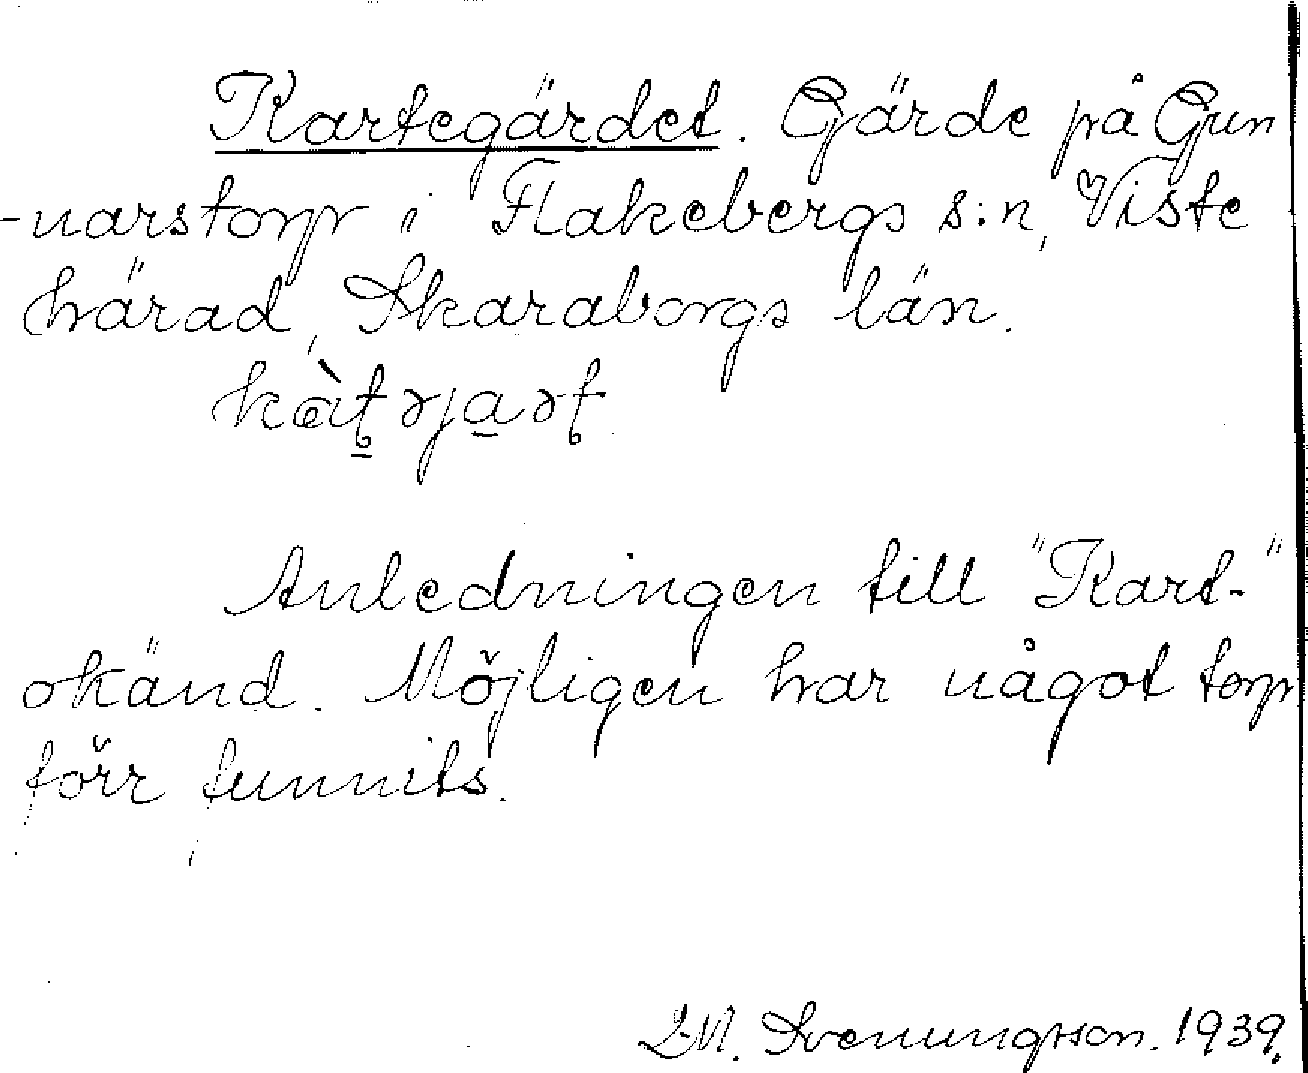 Kartegärdet. Gärde på Gun
-narstorp i Flakebergs s:n, Viste
härad, Skaraborgs län.
kàʈəjaɚʈ

Anledningen till "Kart-"
okänd. Möjligen har något torp
förr funnits.
M. Svenungsson. 1939.